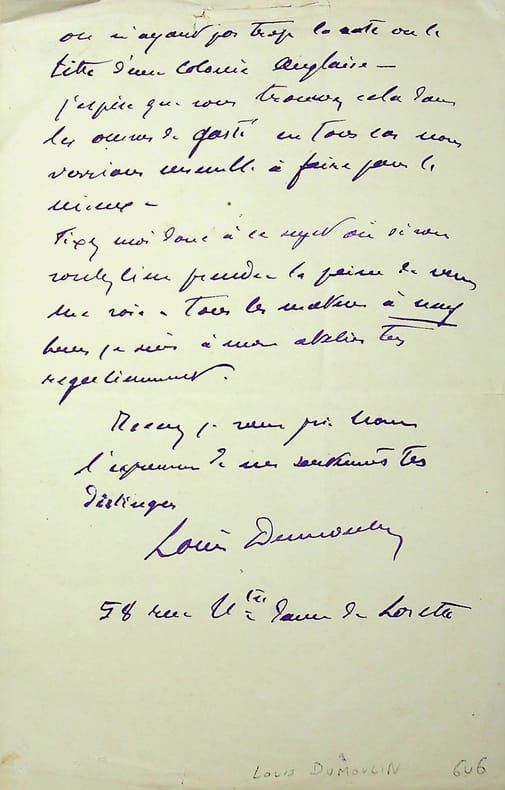 ou n'ayant pas trop la note ou le
titre d'une Colonie Anglaise —
j'espère que vous trouverez cela dans
les œuvres de Gasté en tous cas nous
verrions ensemble à faire pour le
mieux —
Fixez moi donc à ce sujet où si vous
voulez bien prendre la peine de venir
me voir — tous les matins à neuf
heures je suis à mon atelier très
régulièrement.
Recevez je vous prie
l'expression de mes sentiments très
distingués
Louis Dumoulin
58 rue Ntre Dame de Lorette
LOUIS DUMOULIN 606